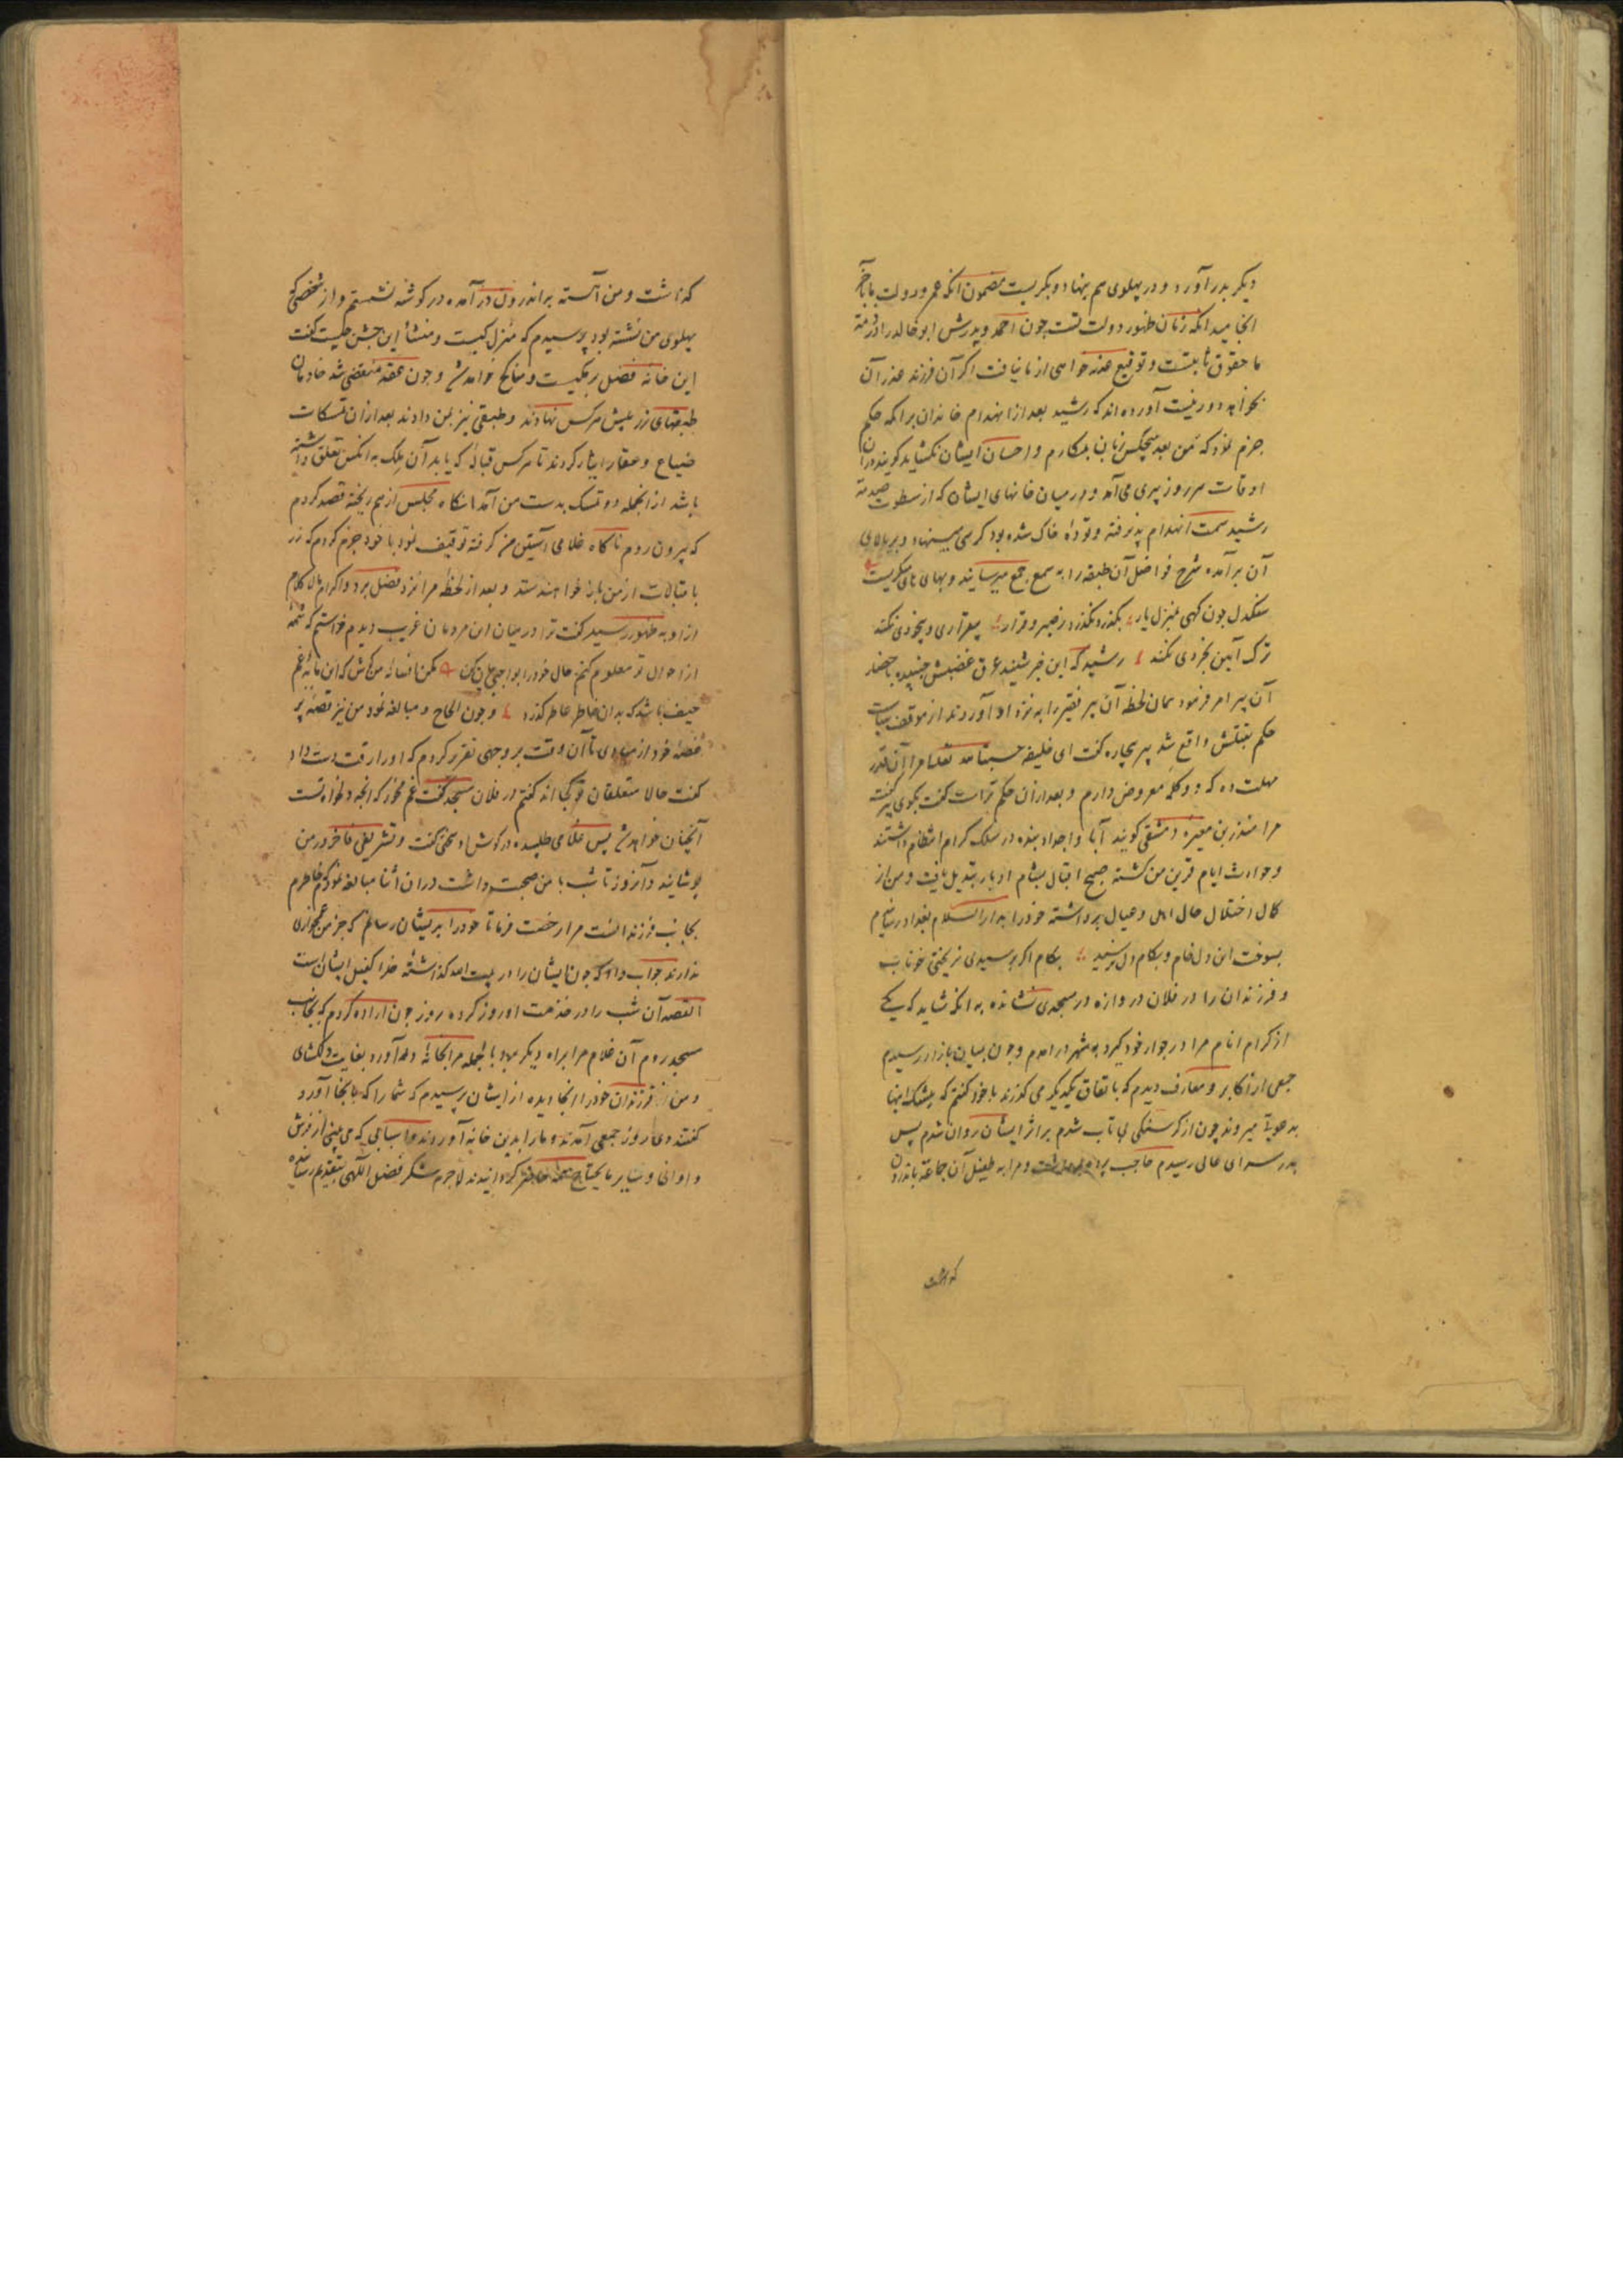 دیکر بدر آورد و در پهلوی هم بنهاد و بکریست مضمون انکه عمر و دولت ما بآخر
انجامید انکه زمان ظهور دولت تست چون احمد و پدرش ابو خالد را در ذمهٔ
ما حقوق ثابتست و توقیع عذرخواهی از ما نیافت اکر آن فرزند عذر آن
بخواهد دور نیست آورده اند که رشید بعد از انهدام خاندان برامکه حکم
جزم نمود که من بعد هیچکس زبان بمکارم و احسان ایشان نکشاید کویند دران
اوقات هر روز پیری می آمد و در میان خانهای ایشان که از سطوت صدمهٔ
رشید سمت انهدام پذیرفته و تودهٔ خاک شده بود کرسی مینهاد و بر بالای
آن برآمده شرح فواضل آن طبقه را به سمع جمع میرسانید و بهای های میکریست
سنکدل چون کهی بمنزل یار بکذرد نکذرد ز صبر و قرار بیقراری و بیخودی نکند
ترک آیین بخردی نکند رشید که این خبر شنید عرق غضبش جنبیده باحضار
آن پیر امر فرمود همان لحظه آن پیر فقیر را به نزد او آوردند از موقف سیاست
حکم بقتلش واقع شد پیر بیچاره کفت ای خلیفه حسبة لله تعالی مرا آن قدر
مهلت ده که دو کلمه معروض دارم و بعد ازان حکم تراست کفت بکوی پیر کفت
مرا منذر بن مغیره دمشقی کویند آبا و اجداد بنده در سلک کرام انتظام داشتند
و حوادث ایام قرین من کشته صبح اقبال بشام ادبار تبدیل یافت و من از
کمال اختلال حال اهل و عیال برداشته خود را بدار السلام بغداد رسانیدم
بسوخت این دل خام و بکام دل نرسید بکام اکر برسیدی نریختی خونابه
و فرزندان را در فلان دروازه در مسجدی نشانده به انکه شاید که یکی
از کرام انام مرا در جوار خود کیرد بشهر درامدم و چون بمیان بازار رسیدم
جمعی از اکابر و معارف دیدم که باتفاق یکدیکر می کذرند با خود کفتم که بیشک اینها
به دعوتی میروند چون از کرسنکی بی تاب شدم بر اثر ایشان روان شدم پس
بدر سرای عالی رسیدم حاجب پرده برداشت و مرا به طفیل آن جماعة باندرون
کذاشت
کذاشت و من آهسته براندرون در آمده در کوشهٔ نشستم و از شخصی که
پهلوی من نشسته بود پرسیدم که منزل کیست و منشأ این جشن چیست کفت
این خانه فضل برمکیست و مناکح خواهد شد و چون عقد منقضی شد خادمان
طبقهای زر پیش هر کس نهادند و طبقی نیز بمن دادند بعد ازان تمسکات
ضیاع و عقار ایثار کردند تا هر کس قباله که یابد آن ملک به انکس تعلق داشته
باشد از انجمله دو تمسک بدست من آمد انکاه مجلس از هم ریخته قصد کردم
که بیرون روم ناکاه غلامی آستین من کرفته توقیف نمود با خود جزم کردم که زر
با قبالات از من باز خواهند ستد و بعد از لحظهٔ مرا نزد فضل برد و اکرام مالا کلام
ازو به ظهور رسید کفت ترا در میان این مردمان غریب دیدم خواستم که شمهٔ
از احوال تو معلوم کنم حال خود را بواجبی بیان کن کفتم افسانه من کاش که این مایهٔ غم
حیف باشد که به ان خاطر عاطر کذرد و چون الحاح و مبالغه نمود من نیز قصهٔ پر
غصهٔ خود از مبادی تا آن وقت بر وجهی تقریر کردم که او را رقت دست داد
کفت حالا متعلقان تو کجا اند کفتم در فلان مسجد کفت غم مخور که انچه دلخواه تست
آنچنان خواهد شد پس غلامی طلبیده در کوش او سخنی کفت و تشریفی فاخر در من
پوشانید و آنروز تا شب با من صحبت داشت دران اثنا مبالغه نمودم که خاطرم
بجانب فرزندانست مرا رخصت فرما تا خود را بریشان رسانم که جز من غمخواری
ندارند جواب داد که چون ایشان را در بیت الله کذاشتهٔ خدا کفیل ایشان است
القصه آن شب را در خدمت او روز کرده روز چون اراده کردم که بجانب
مسجد روم آن غلام مرا براه دیکر برد بالجمله مرا بخانهٔ درآورد بغایت دلکشای
و من فرزندان خود را انجا دیده از ایشان پرسیدم که شما را که بانجا آورد
کفتند دی روز جمعی آمدند و ما را بدین خانه آوردند و اسبابی که می بینی از فرش
و اوانی و سایر ما یحتاج همه حاضر کردانیدند لاجرم شکر فضل الهی بتقدیم رسانیده